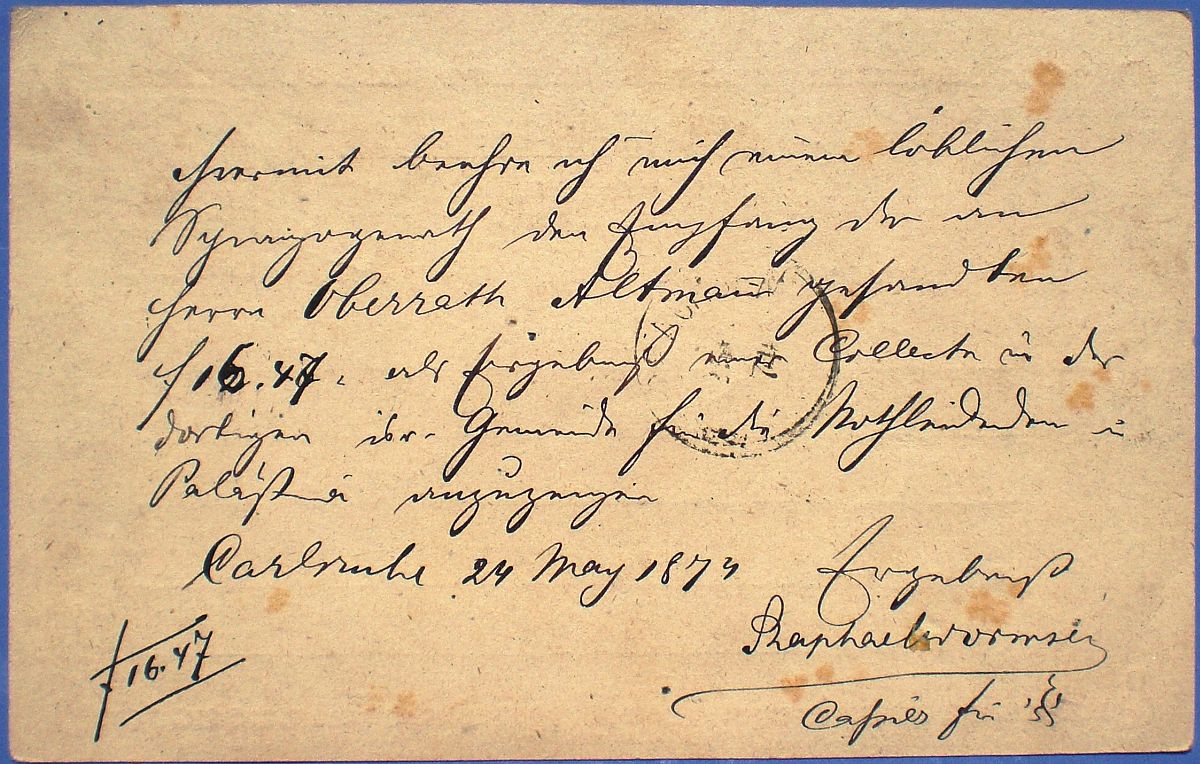 Hiermit beehre ich mich einem löblichen
Synagogenrath den Empfang der an
Herrn Oberrath Altmann gesandten
f 16.47, als Ergebniß einer Collecte in der
dortigen isr. Gemeinde für die Nothleidenden in
Palästina anzuzeigen
Carlsruhe 24 May 1874 Ergebenst
Raphael Wormser
f 16.47
Cassier für